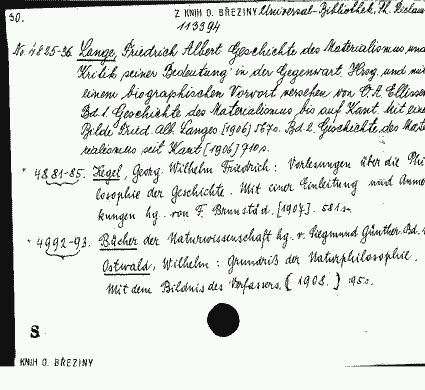 30.
Z KNIH O. BŘEZINY Universal-Bibliothek, Ph. Reclam
113394
No. 4825-36. Lange, Friedrich Albert Geschichte des Materialismus und
Kritik seiner Bedeutung in der Gegenwart. Hrsg. und mit
einem biographischen Vorwort versehen von O. A. Ellissen
Bd. 1. Geschichte des Materialismus bis auf Kant. Mit eine
Bilde Fried. Alb. Langes [1906] 567 s. Bd. 2. Geschichte des Mate
rialismus seit Kant [1906] 710 s.
" 4881-85. Hegel, Georg Wilhelm Friedrich: Vorlesungen über die Phi
losophie der Geschichte. Mit einer Einleitung und Anmer
kungen hg. von F. Brunstäd. [1907]. 581 s.
" 4992-93. Bücher der Naturwissenschaft hg. v. Siegmund Günther. Bd. 1
Ostwald, Wilhelm: Grundriß der Naturphilosophie.
Mit dem Bildnis des Verfassers. (1908.) 195 s.
S
KNIH O. BŘEZINY